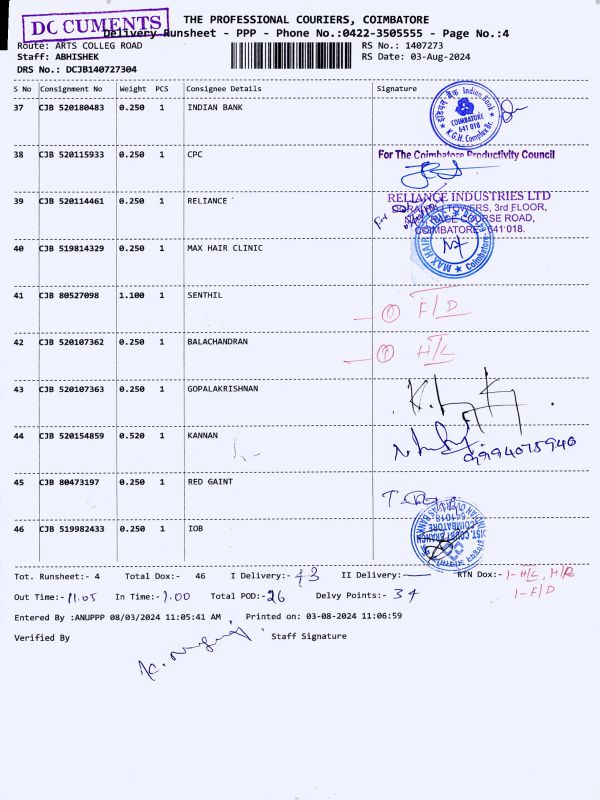 DOCUMENTS
THE PROFESSIONAL COURIERS, COIMBATORE
Delivery Runsheet - PPP - Phone No.:0422-3505555 - Page No.:4
Route: ARTS COLLEG ROAD RS No.: 1407273
Staff: ABHISHEK RS Date: 03-Aug-2024
DRS No.: DCJB140727304
S No Consignment No Weight PCS Consignee Details Signature
37 CJB 520180483 0.250 1 INDIAN BANK
इंडियन बैंक Indian Bank
COIMBATORE
641 018
K.G.H. Complex Br.
38 CJB 520115933 0.250 1 CPC For The Coimbatore Productivity Council
39 CJB 520114461 0.250 1 RELIANCE RELIANCE INDUSTRIES LTD
TOWERS, 3rd FLOOR,
RACE COURSE ROAD,
COIMBATORE - 641 018.
40 CJB 519814329 0.250 1 MAX HAIR CLINIC
MAX HAIR Coimbatore
41 CJB 80527098 1.100 1 SENTHIL ① F/D
42 CJB 520107362 0.250 1 BALACHANDRAN ① H/L
43 CJB 520107363 0.250 1 GOPALAKRISHNAN
44 CJB 520154859 0.520 1 KANNAN 9994075940
45 CJB 80473197 0.250 1 RED GAINT
46 CJB 519982433 0.250 1 IOB
DIST. COURT BRANCH
COIMBATORE
641018
Tot. Runsheet:- 4 Total Dox:- 46 I Delivery:- 43 II Delivery:- RTN Dox:- 1-H/L, H/R
Out Time:- 11.05 In Time:- 1.00 Total POD:- 26 Delvy Points:- 34 1-F/D
Entered By :ANUPPP 08/03/2024 11:05:41 AM , Printed on: 03-08-2024 11:06:59
Verified By Staff Signature